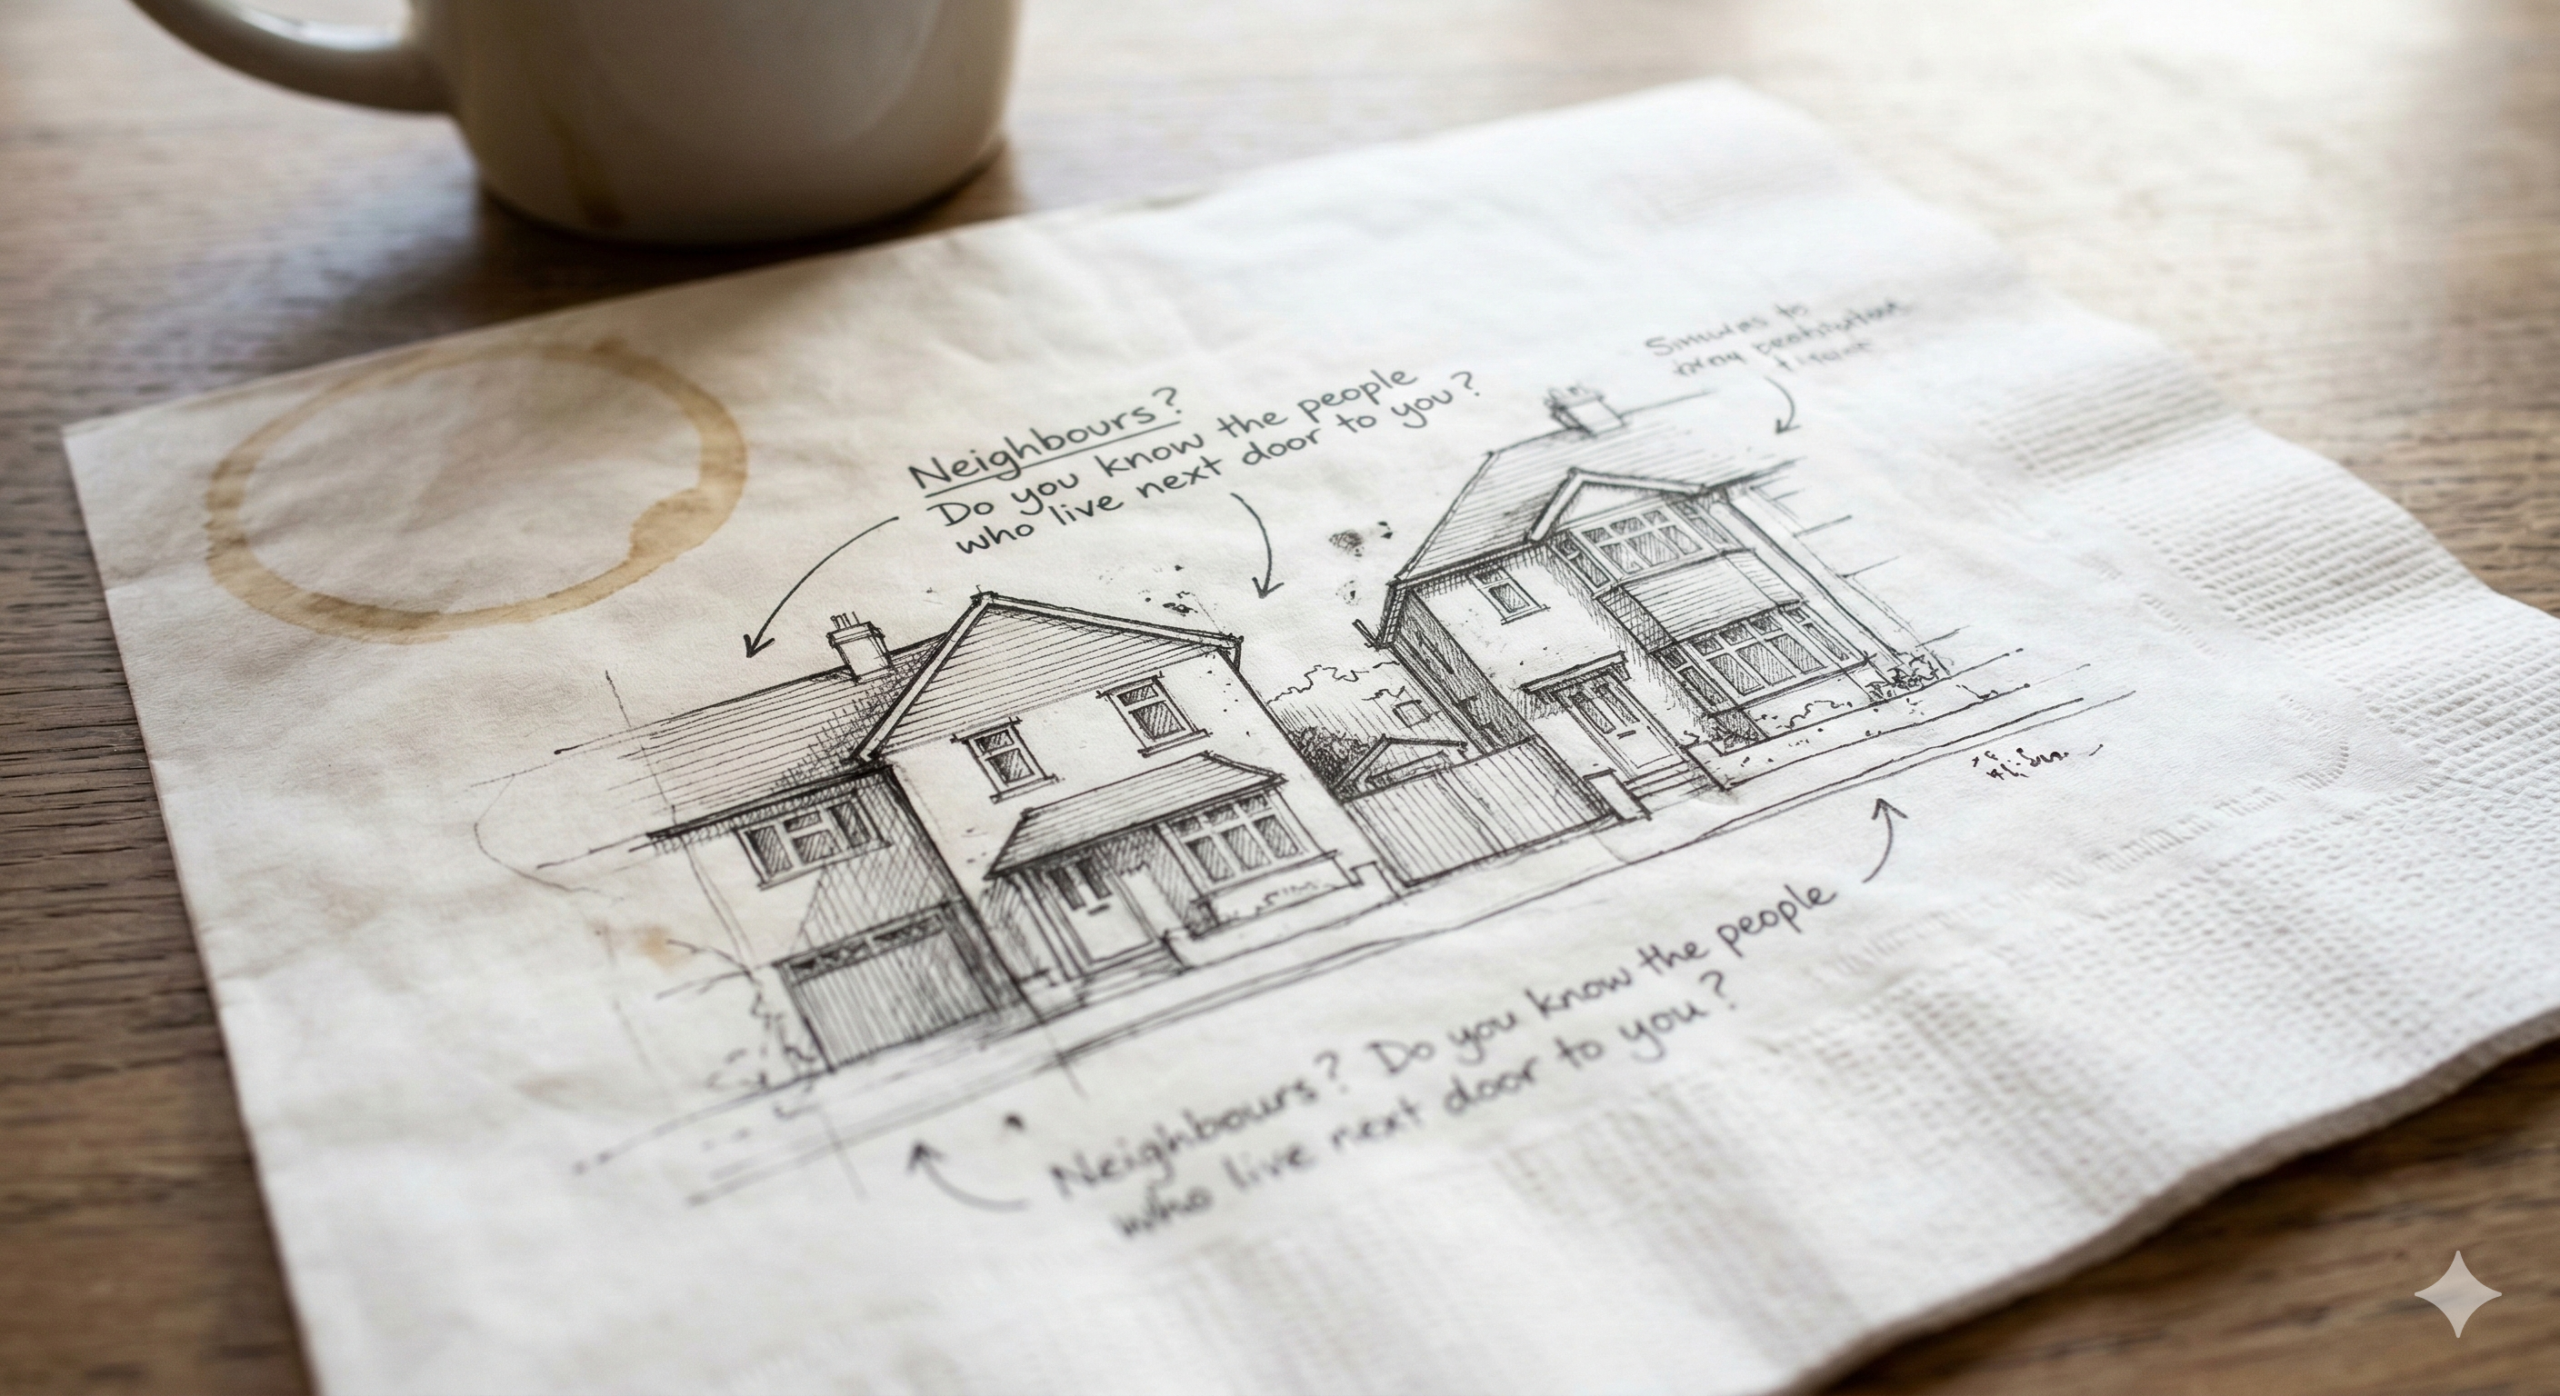 Neighbours?
Do you know the people
who live next door to you?
Neighbours? Do you know the people
who live next door to you?